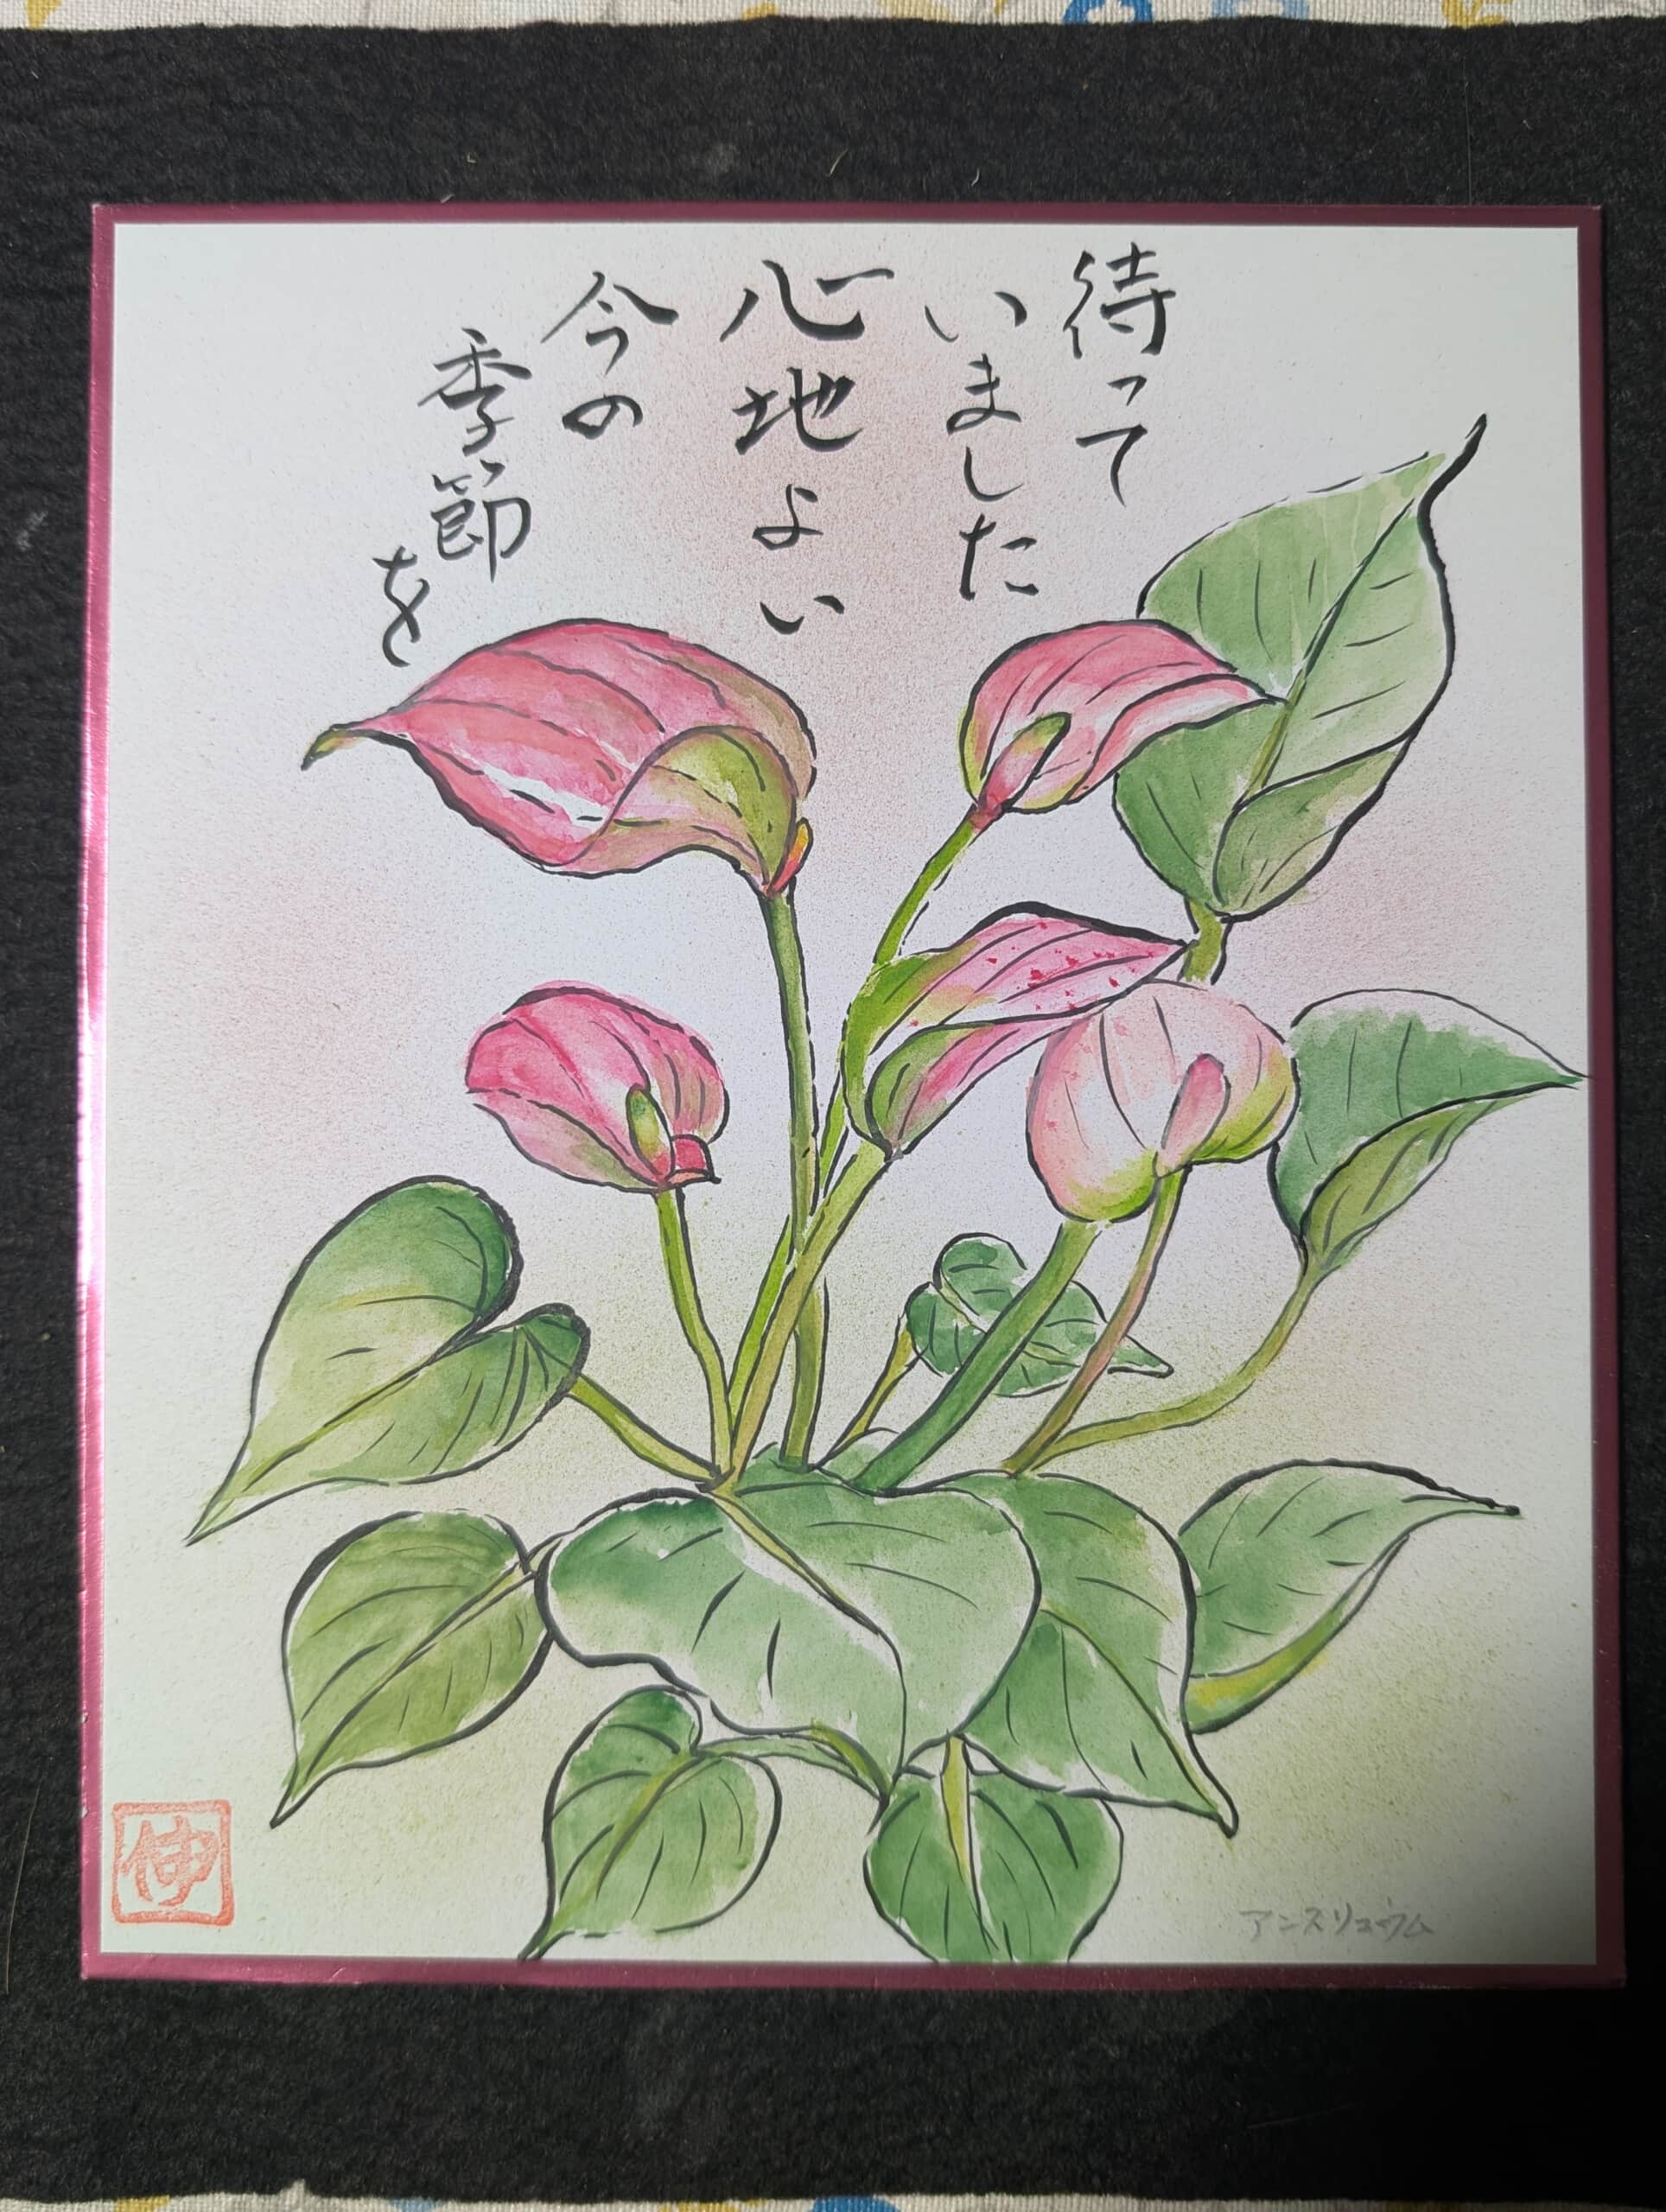 待って
いました
心地よい
今の
季節
を
アンスリュウム
伸